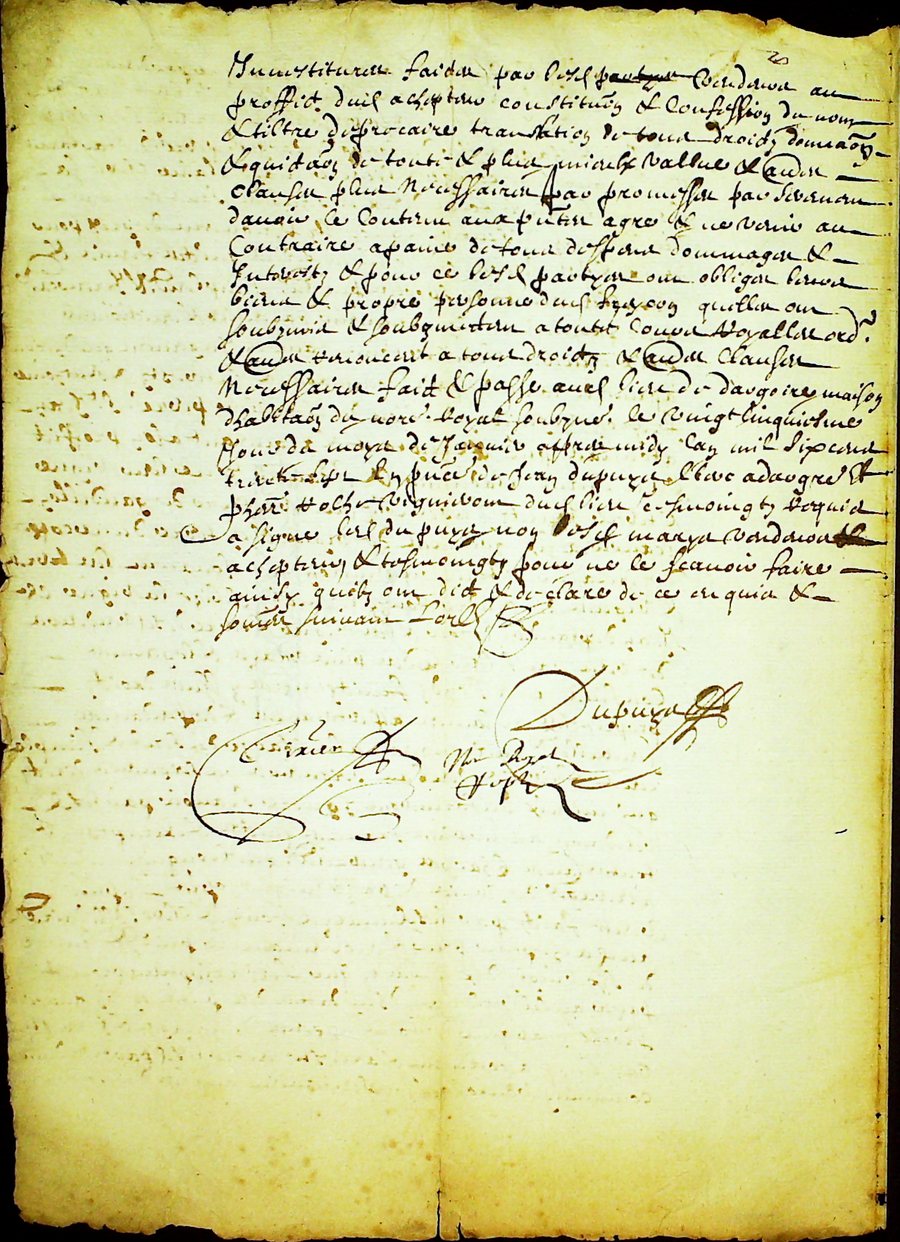 Investitures faictes par lesd partyes vendeurs au
proffict dud achepteur constitutõn & Confession du nom
& tiltre de precaire translation de tous droictz dominaõn
& quictaõn de toute & plus mieulx vallue & autres
Clauses plus Necessaires par promesses par serement
davoir le Contenu aux pñtes agre & ne venir au
Contraire a paine de tous despens dommages &
Interestz & pour ce lesd partyes ont obliges leurs
biens & propre personne dud quilles ont
soubzmis & soubzmectent a toutes Cours Royalles ord.res
& autres Renonceant a tous droictz & autres Clauses
Necessaires faict & passe aud lieu de dargoire maison
dhabitaõn du nore Royal soubzne le vingt cinquiesme
Jour du moys de Janvier appres midy lan mil six cens
trente sept En pñce de Jean dupuys Clerc a dargre &
phes Roche vigneron dud lieu tesmoingtz Requis
a signe led dupuys non lesd maryes vendeurs
achepteur & tesmoingtz pour ne le scavoir faire
ainsy quilz ont dict & declare de ce enquis &
sommes suivant Lord
Dupuys
Terrier
Nre Royal